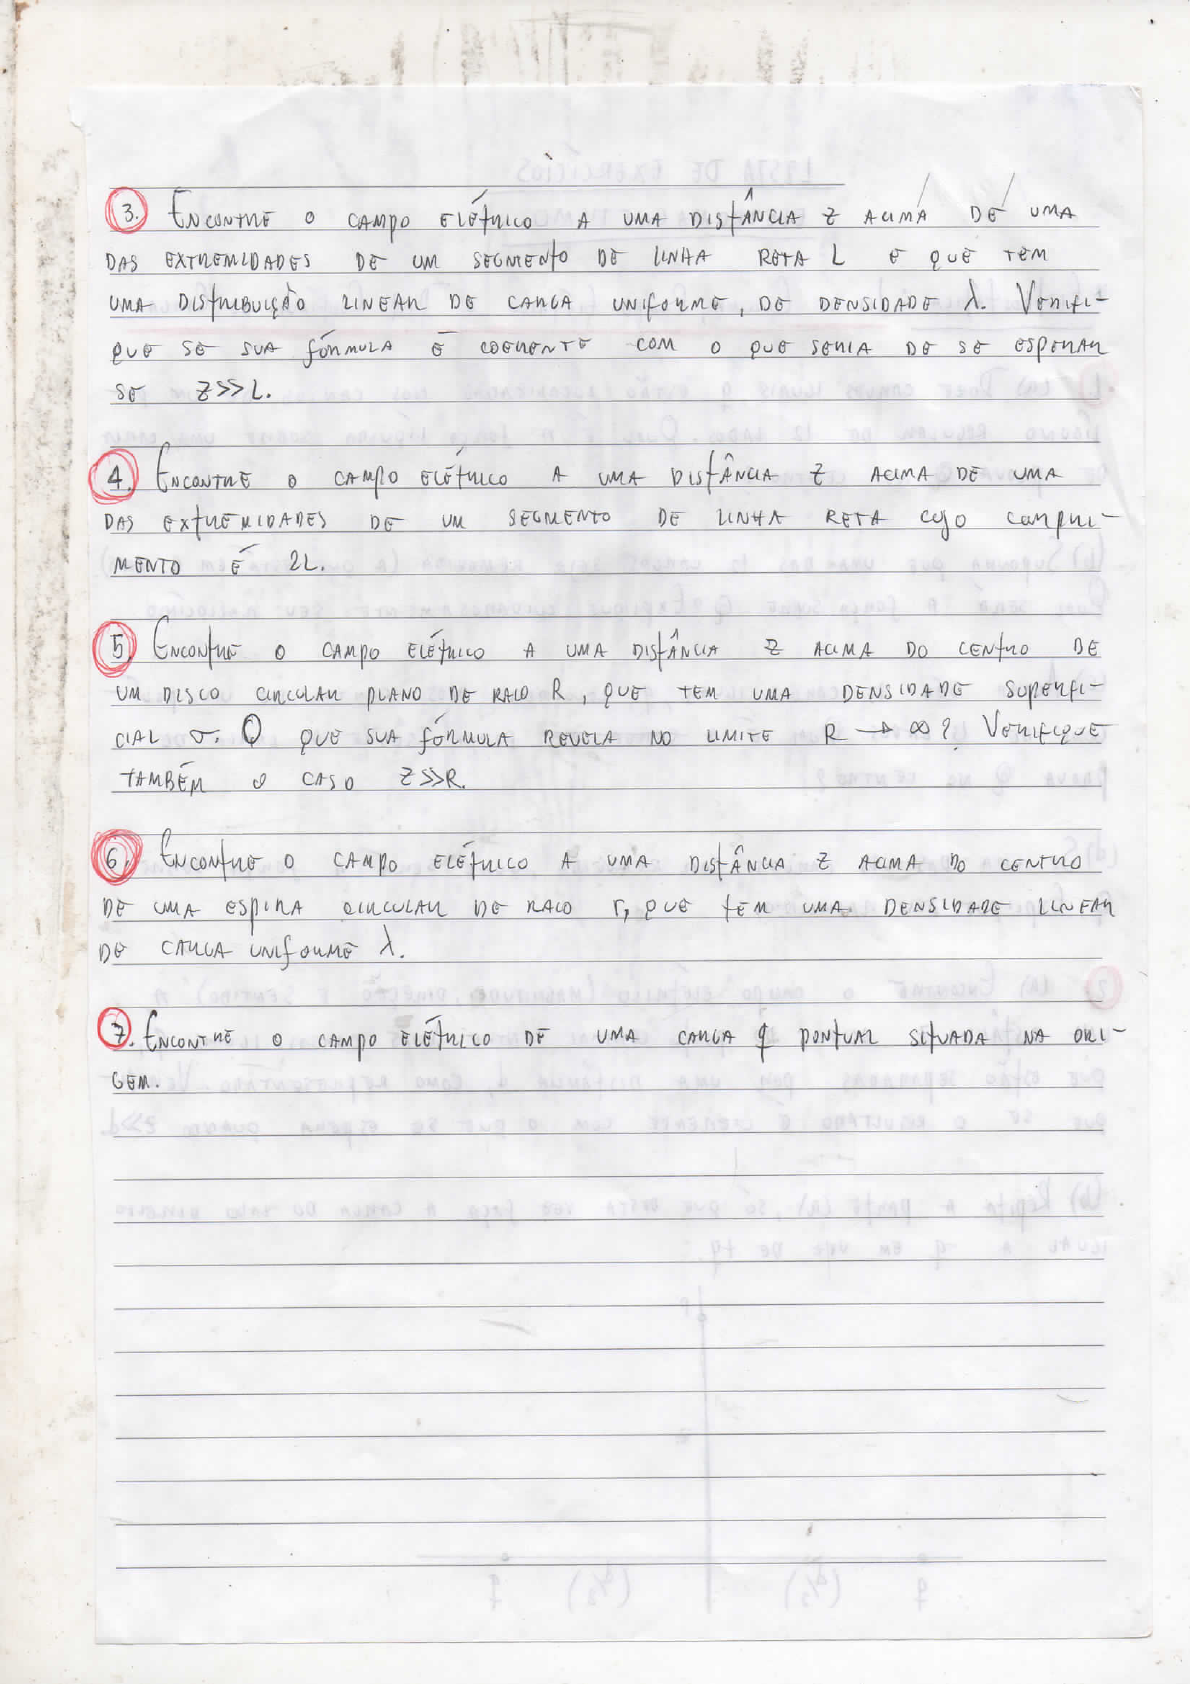 3. Encontre o campo elétrico a uma distância z acima de uma
das extremidades de um segmento de linha reta L e que tem
uma distribuição linear de carga uniforme, de densidade λ. Verifi-
que se sua fórmula é coerente com o que seria de se esperar
se z>>L.
4. Encontre o campo elétrico a uma distância z acima de uma
das extremidades de um segmento de linha reta cujo compri-
mento é 2L.
5. Encontre o campo elétrico a uma distância z acima do centro de
um disco circular plano de raio R, que tem uma densidade superfi-
cial σ. O que sua fórmula revela no limite R → ∞? Verifique
também o caso z>>R.
6. Encontre o campo elétrico a uma distância z acima do centro
de uma espira circular de raio r, que tem uma densidade linear
de carga uniforme λ.
7. Encontre o campo elétrico de uma carga q pontual situada na ori-
gem.